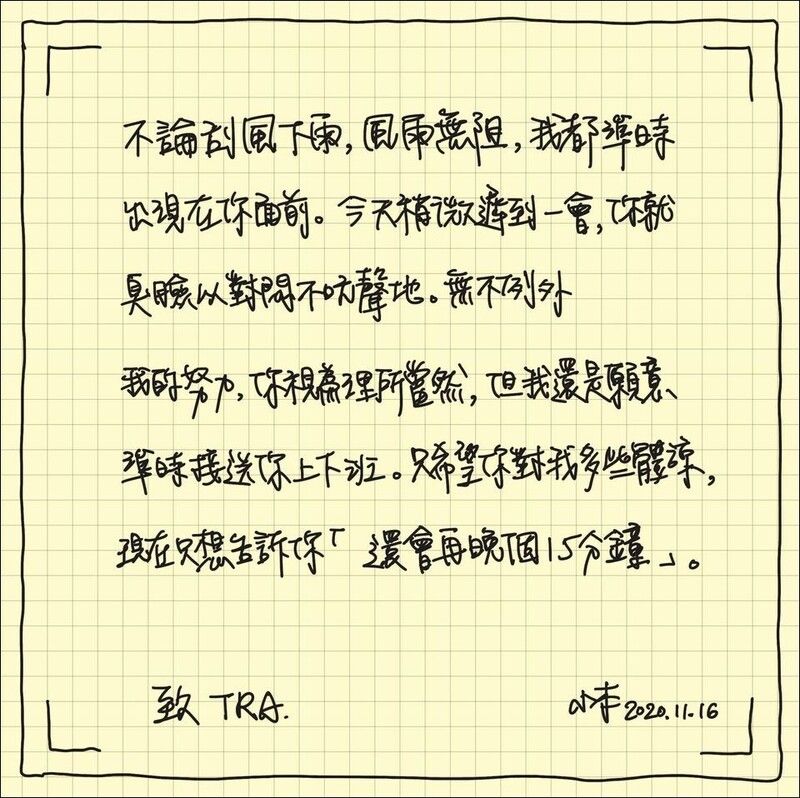 不論刮風下雨，風雨無阻，我都準時
出現在你面前。今天稍微遲到一會，你就
臭臉以對悶不吭聲地。無不例外
我的努力，你視為理所當然，但我還是願意、
準時接送你上下班。只希望你對我多些體諒，
現在只想告訴你「還會再晚個15分鐘」。
致 TRA.
小李 2020.11.16